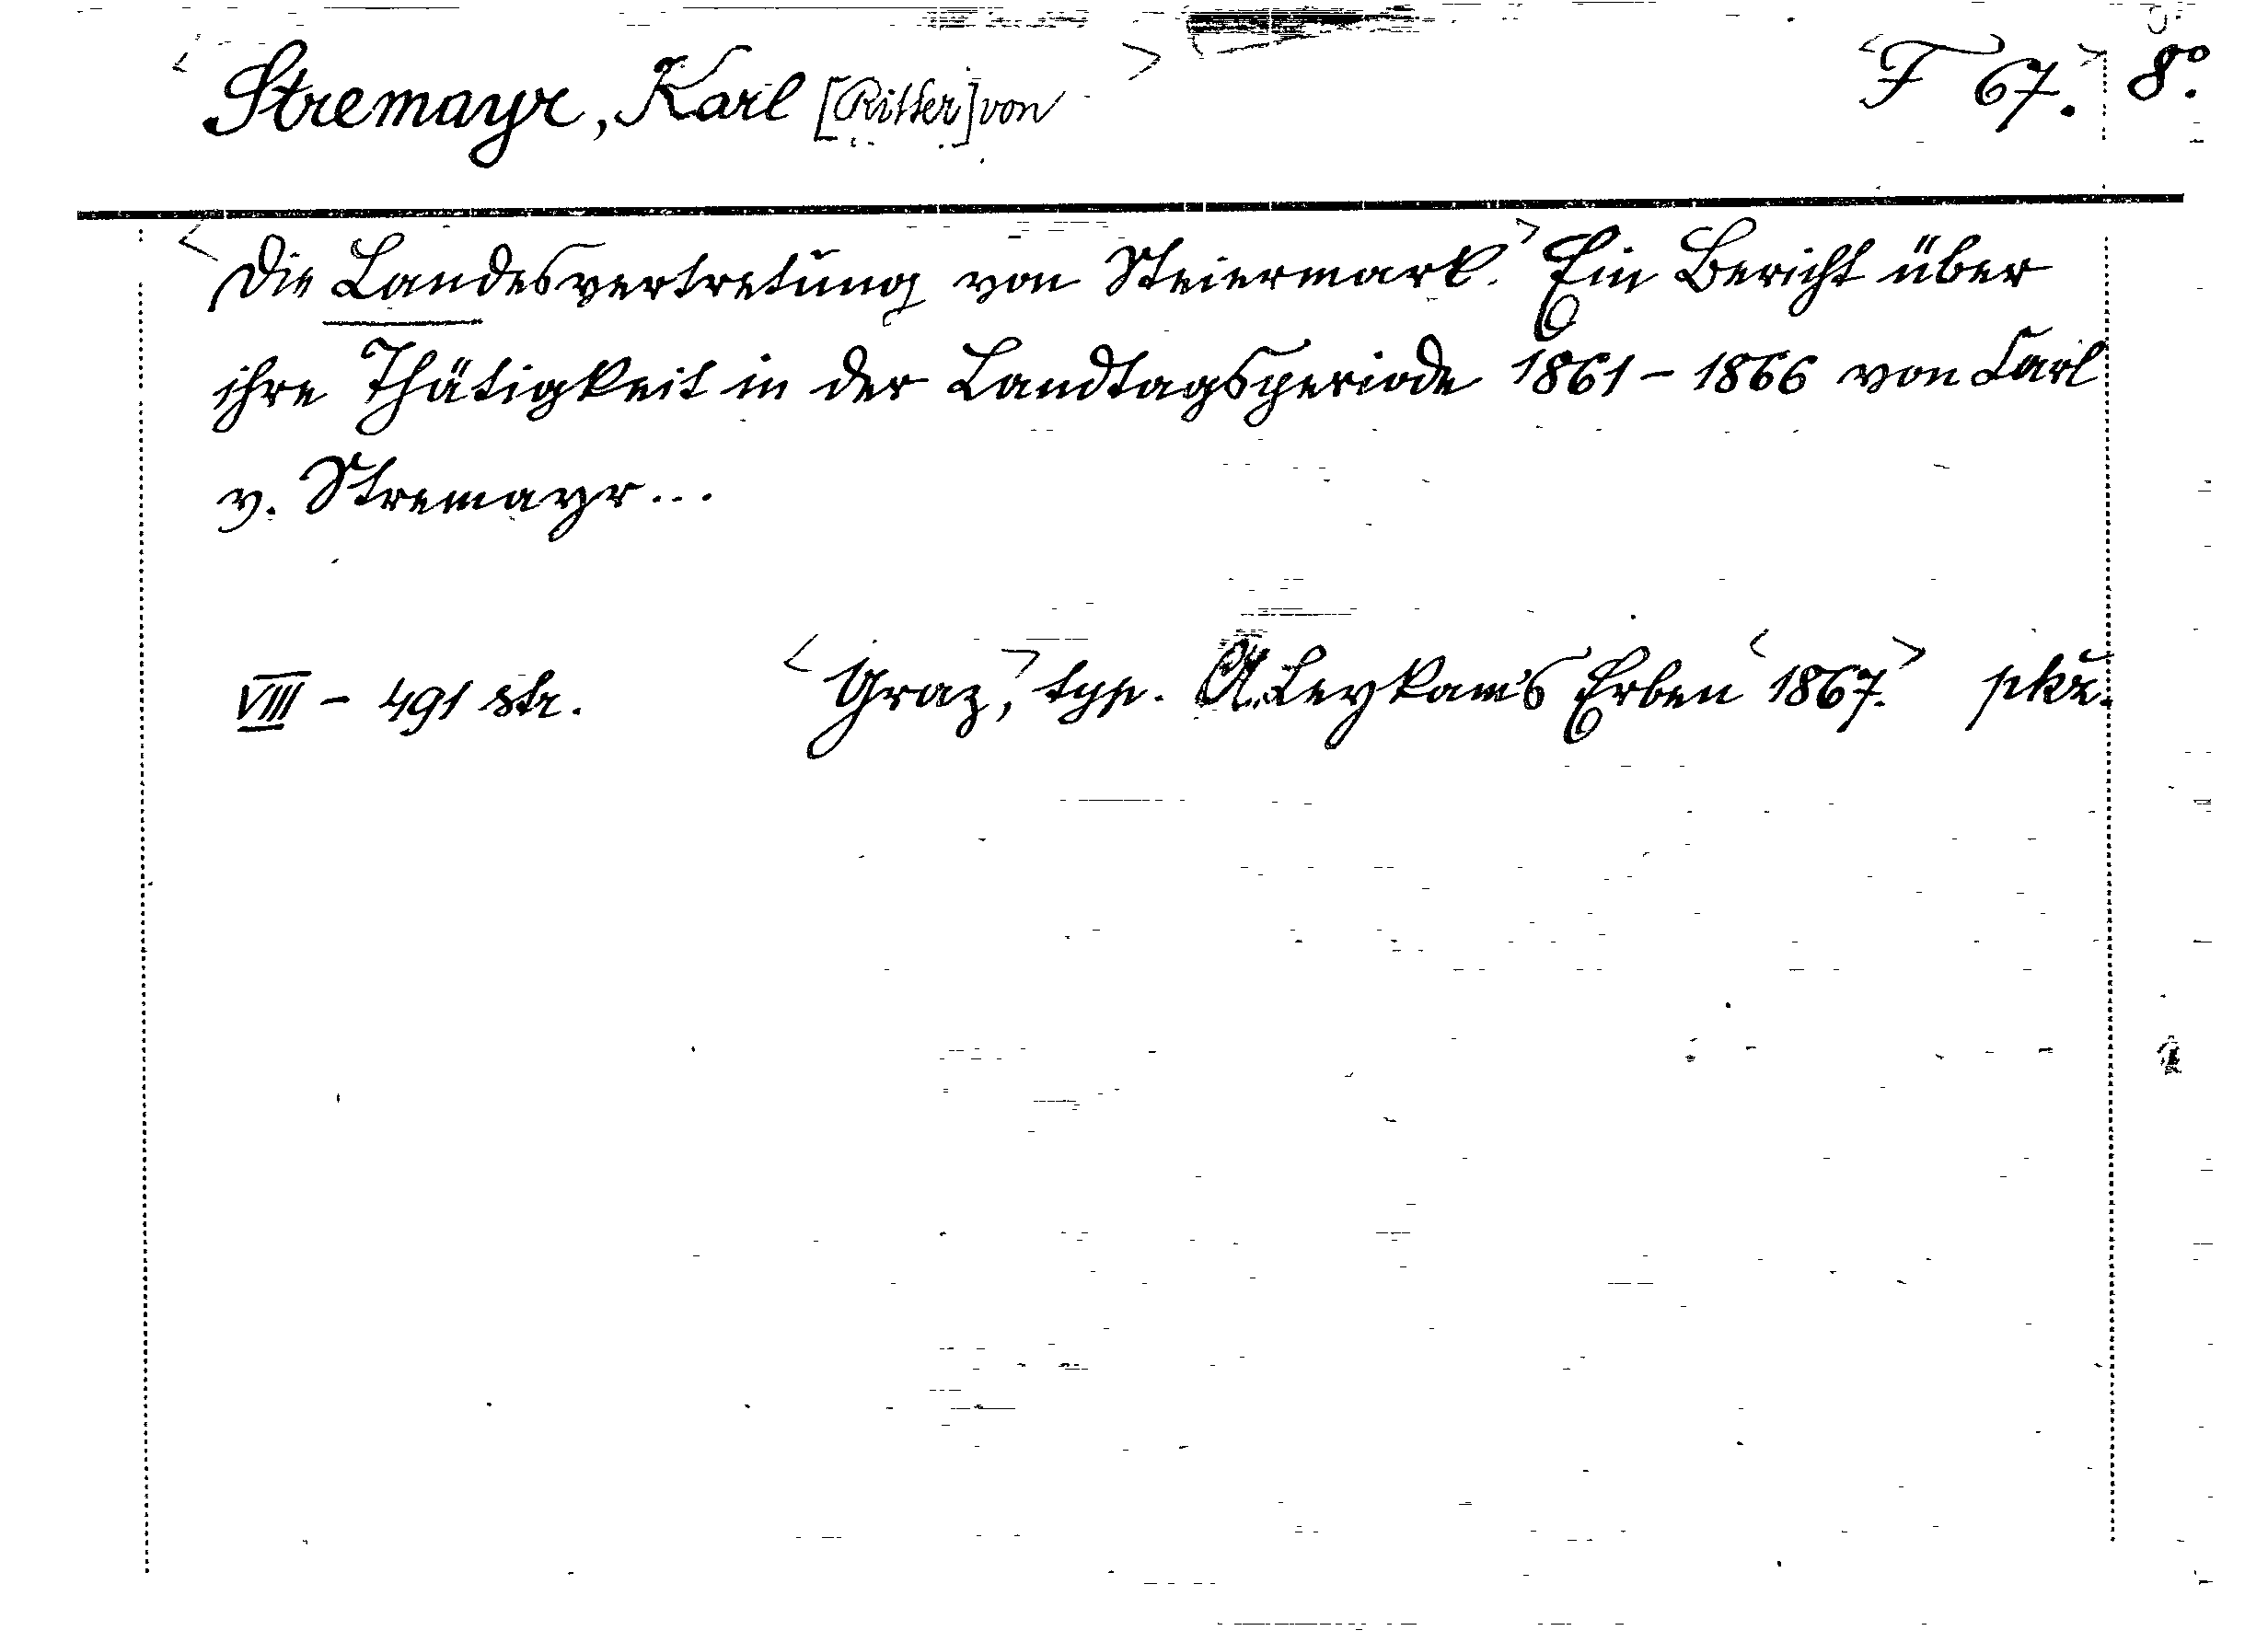 <Stremayr, Karl [Ritter] von> <F 67.> 8°.
<Die Landesvertretung von Steiermark.> Ein Bericht über
ihre Thätigkeit in der Landtagsperiode 1861 - 1866 von Carl
v. Stremayr...
VIII - 491 str. <Graz,> typ. A. Leykam's Erben <1867.> pkž.